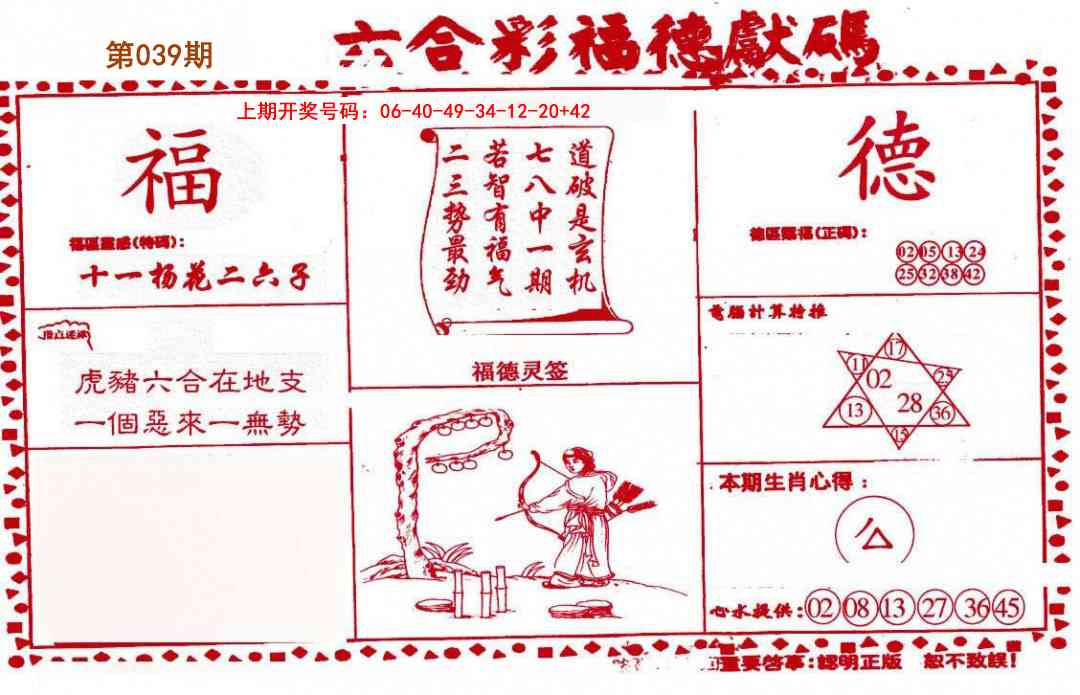 六合彩福德獻碼
第039期
上期开奖号码：06-40-49-34-12-20+42
福
福區靈感(特碼):
十一杨花二六子
虎豬六合在地支
一個惡來一無勢
道破是玄机
七八中一期
若智有福气
二三势最劲
福德灵签
德
德區賜福(正碼):
02 05 13 24
25 32 38 42
電腦計算特推
17
11
02
25
13
28
36
15
本期生肖心得：
心水提供:02 08 13 27 36 45
重要啓事:認明正版 恕不致誤!